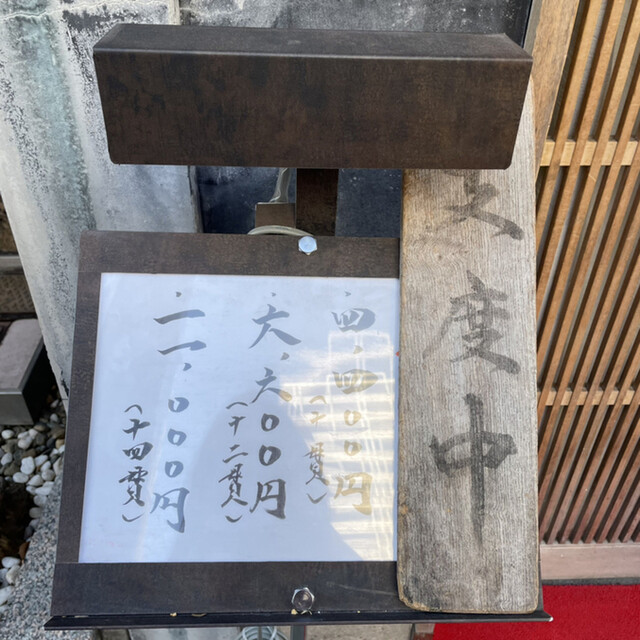 ・四、四〇〇円
（十貫）
・六、六〇〇円
（十二貫）
・一一、〇〇〇円
（十四貫）
支度中